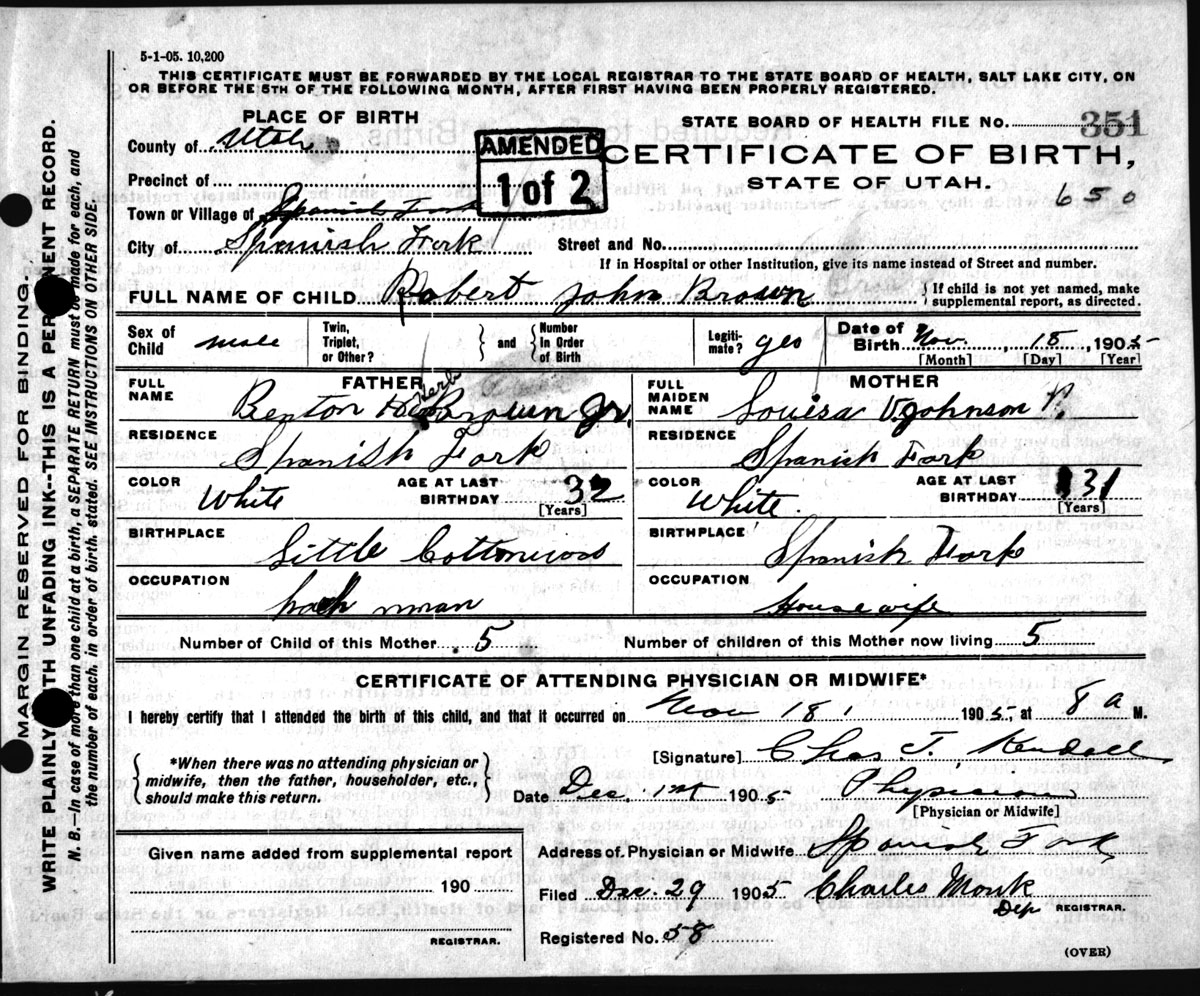 5-1-05. 10,200
THIS CERTIFICATE MUST BE FORWARDED BY THE LOCAL REGISTRAR TO THE STATE BOARD OF HEALTH, SALT LAKE CITY, ON
OR BEFORE THE 5TH OF THE FOLLOWING MONTH, AFTER FIRST HAVING BEEN PROPERLY REGISTERED.
PLACE OF BIRTH
County of Utah
Precinct of
Town or Village of Spanish Fork
City of Spanish Fork
AMENDED
1 of 2
STATE BOARD OF HEALTH FILE No. 351
CERTIFICATE OF BIRTH,
STATE OF UTAH.
650
Street and No.
If in Hospital or other Institution, give its name instead of Street and number.
FULL NAME OF CHILD Robert John Brown
{ If child is not yet named, make
supplemental report, as directed.
Sex of Child male
Twin, Triplet, or Other? } and { Number In Order of Birth
Legiti-mate? yes
Date of Birth Nov. 18, 1905
[Month] [Day] [Year]
FATHER
FULL NAME Benton Brown Jr.
RESIDENCE Spanish Fork
COLOR White
AGE AT LAST BIRTHDAY 32
[Years]
BIRTHPLACE Little Cottonwood
OCCUPATION
MOTHER
FULL MAIDEN NAME Louisa V. Johnson
RESIDENCE Spanish Fork
COLOR White.
AGE AT LAST BIRTHDAY 31
[Years]
BIRTHPLACE Spanish Fork
OCCUPATION Housewife
Number of Child of this Mother 5
Number of children of this Mother now living 5
CERTIFICATE OF ATTENDING PHYSICIAN OR MIDWIFE*
I hereby certify that I attended the birth of this child, and that it occurred on Nov 18, 1905, at 8 a M.
{ *When there was no attending physician or
midwife, then the father, householder, etc.,
should make this return. }
[Signature] Chas T. Kendall
Date Dec. 1st 1905 Physician
[Physician or Midwife]
Given name added from supplemental report
190
REGISTRAR.
Address of Physician or Midwife Spanish Fork
Filed Dec. 29 1905 Charles Monk
Dep REGISTRAR.
Registered No. 58
(OVER)
MARGIN RESERVED FOR BINDING.
WRITE PLAINLY WITH UNFADING INK--THIS IS A PERMANENT RECORD.
N. B.--In case of more than one child at a birth, a SEPARATE RETURN must be made for each, and
the number of each, in order of birth, stated. SEE INSTRUCTIONS ON OTHER SIDE.